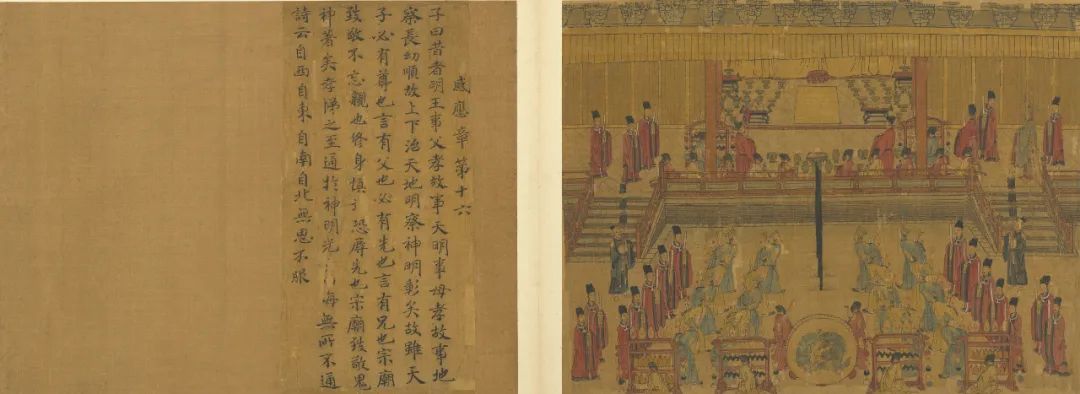 感應章第十六
子曰昔者明王事父孝故事天明事母孝故事地
察長幼順故上下治天地明察神明彰矣故雖天
子必有尊也言有父也必有先也言有兄也宗廟
致敬不忘親也修身慎恐辱先也宗廟致敬鬼
神著矣孝悌之至通於神明光海無所不通
詩云自西自東自南自北無思不服